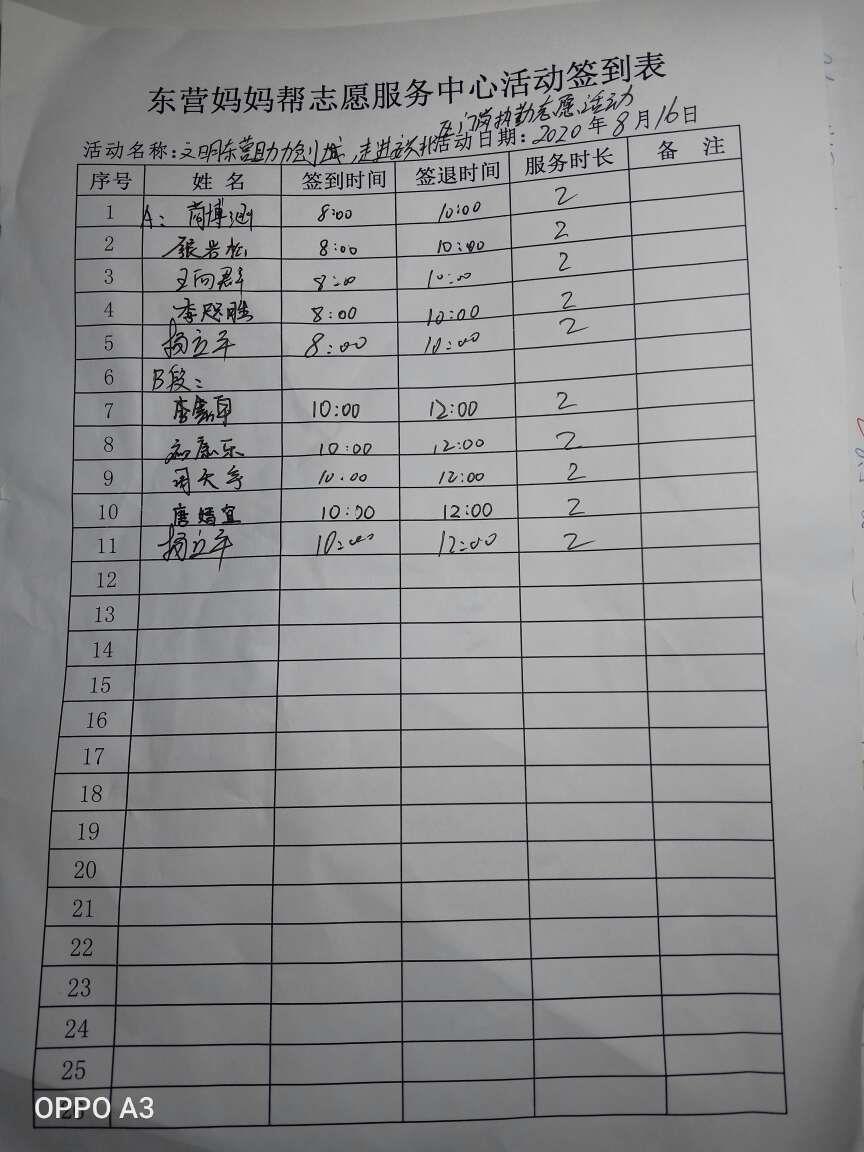 东营妈妈帮志愿服务中心活动签到表
门岗执勤志愿活动
活动名称：文明东营助力创城，走进 活动日期：2020年8月16日
序号 姓名 签到时间 签退时间 服务时长 备注
1 A： 博涵 8:00 10:00 2
2 张岩松 8:00 10:00 2
3 王向群 8:00 10:00 2
4 李 胜 8:00 10:00 2
5 杨立军 8:00 10:00 2
6 B段：
7 李 10:00 12:00 2
8 刘康乐 10:00 12:00 2
9 周天 10:00 12:00 2
10 唐婧宜 10:00 12:00 2
11 杨立军 10:00 12:00 2
12
13
14
15
16
17
18
19
20
21
22
23
24
25
OPPO A3